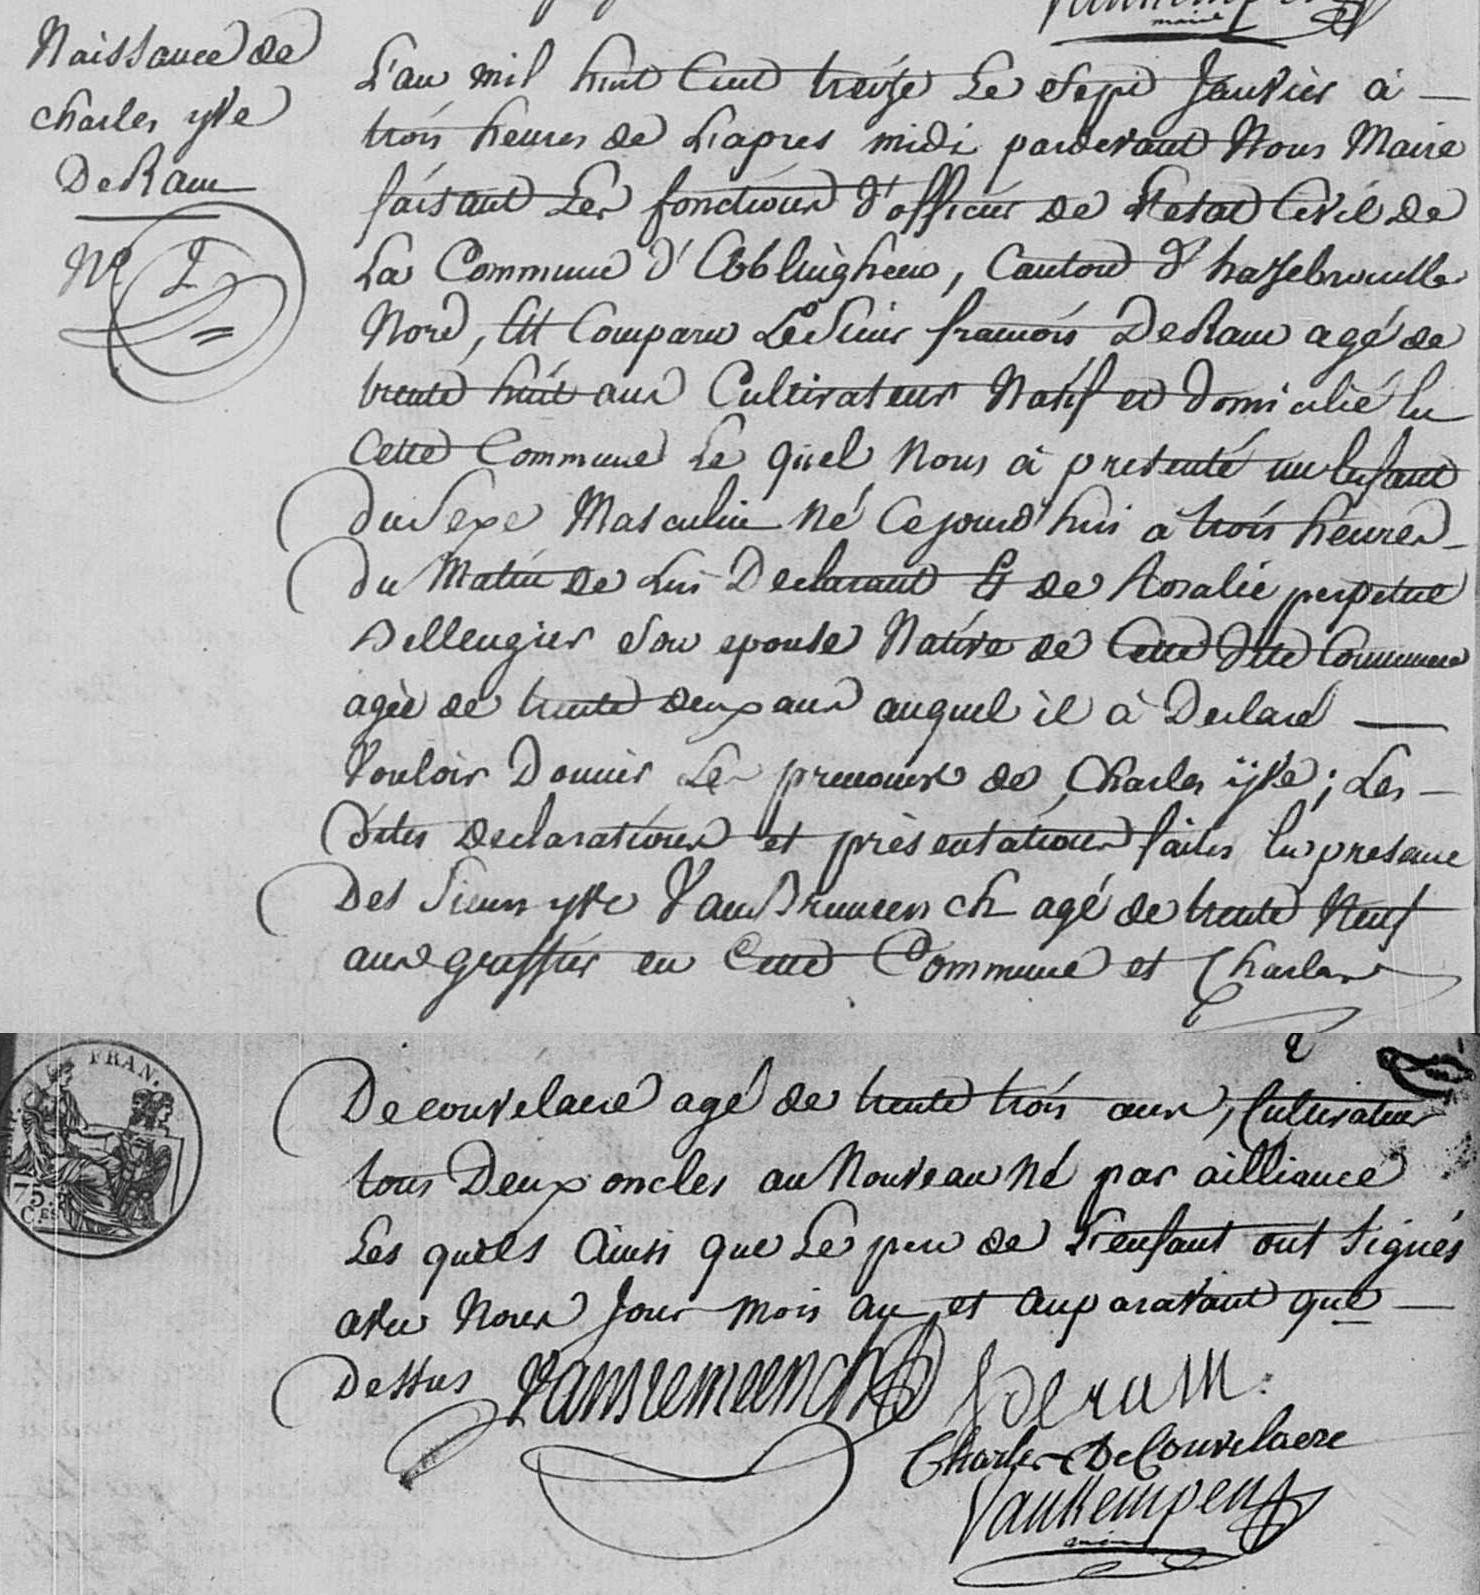 Vankempen
maire
Naissance de
Charles yve
DeRam
No. 2
L'an mil huit Cent treize Le Sept Janvier à
trois heures de L'apres midi pardevant Nous Maire
faisant Les fonctions d'officier de L'etat Civil de
La Commune d'Ebblinghem, Canton d'hazebrouck
Nord, Est Comparu Le Sieur francois DeRam agé de
trente huit ans Cultivateur Natif et Domicilié En
Cette Commune Le quel Nous à presenté un Enfant
du Sexe Masculin Né Cejourd'hui a trois heures
du Matin de Lui Declarant Et de Rosalie perpetue
Dellengier Son epouse Native de Cette dite Commune
agée de trente deux ans auquel il à Declaré
Vouloir Donner Les prenoms de Charles yve; Les
dites Declarations et présentations faites En presence
Des Sieurs yve VanBremeersch agé de trente Neuf
ans greffier en Cette Commune et Charles
FRAN.
75
Ces
Decouvelaere agé de trente trois ans, Cultivateur
tous Deux oncles au Nouveau Né par ailliance
Les quels Ainsi que Le pere de L'enfant ont Signés
avec Nous Jour mois an et auparavant que
Dessus Vanbremeersch f deram.
Charles DeCouvelaere
Vankempen
maire